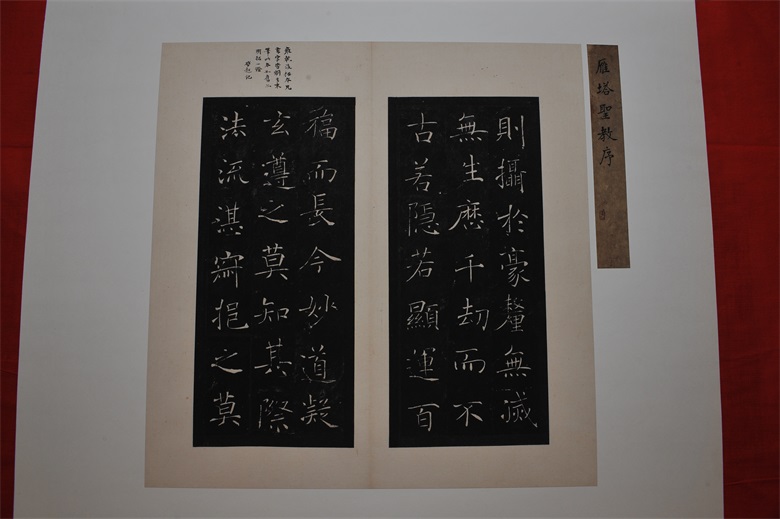 雁塔聖教序
則攝於豪釐無滅
無生歷千劫而不
古若隱若顯運百
福而長今妙道凝
玄遵之莫知其際
法流湛寂挹之莫